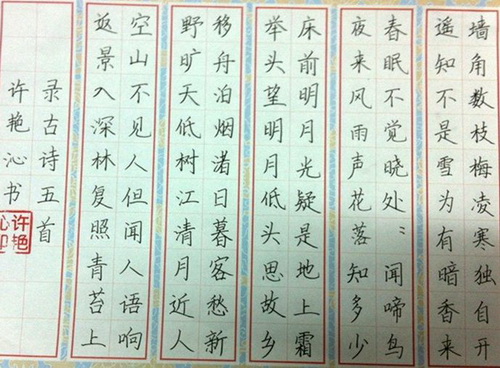 墙角数枝梅凌寒独自开
遥知不是雪为有暗香来
春眠不觉晓处〻闻啼鸟
夜来风雨声花落知多少
床前明月光疑是地上霜
举头望明月低头思故乡
移舟泊烟渚日暮客愁新
野旷天低树江清月近人
空山不见人但闻人语响
返景入深林复照青苔上
录古诗五首
许艳沁书
许艳沁印